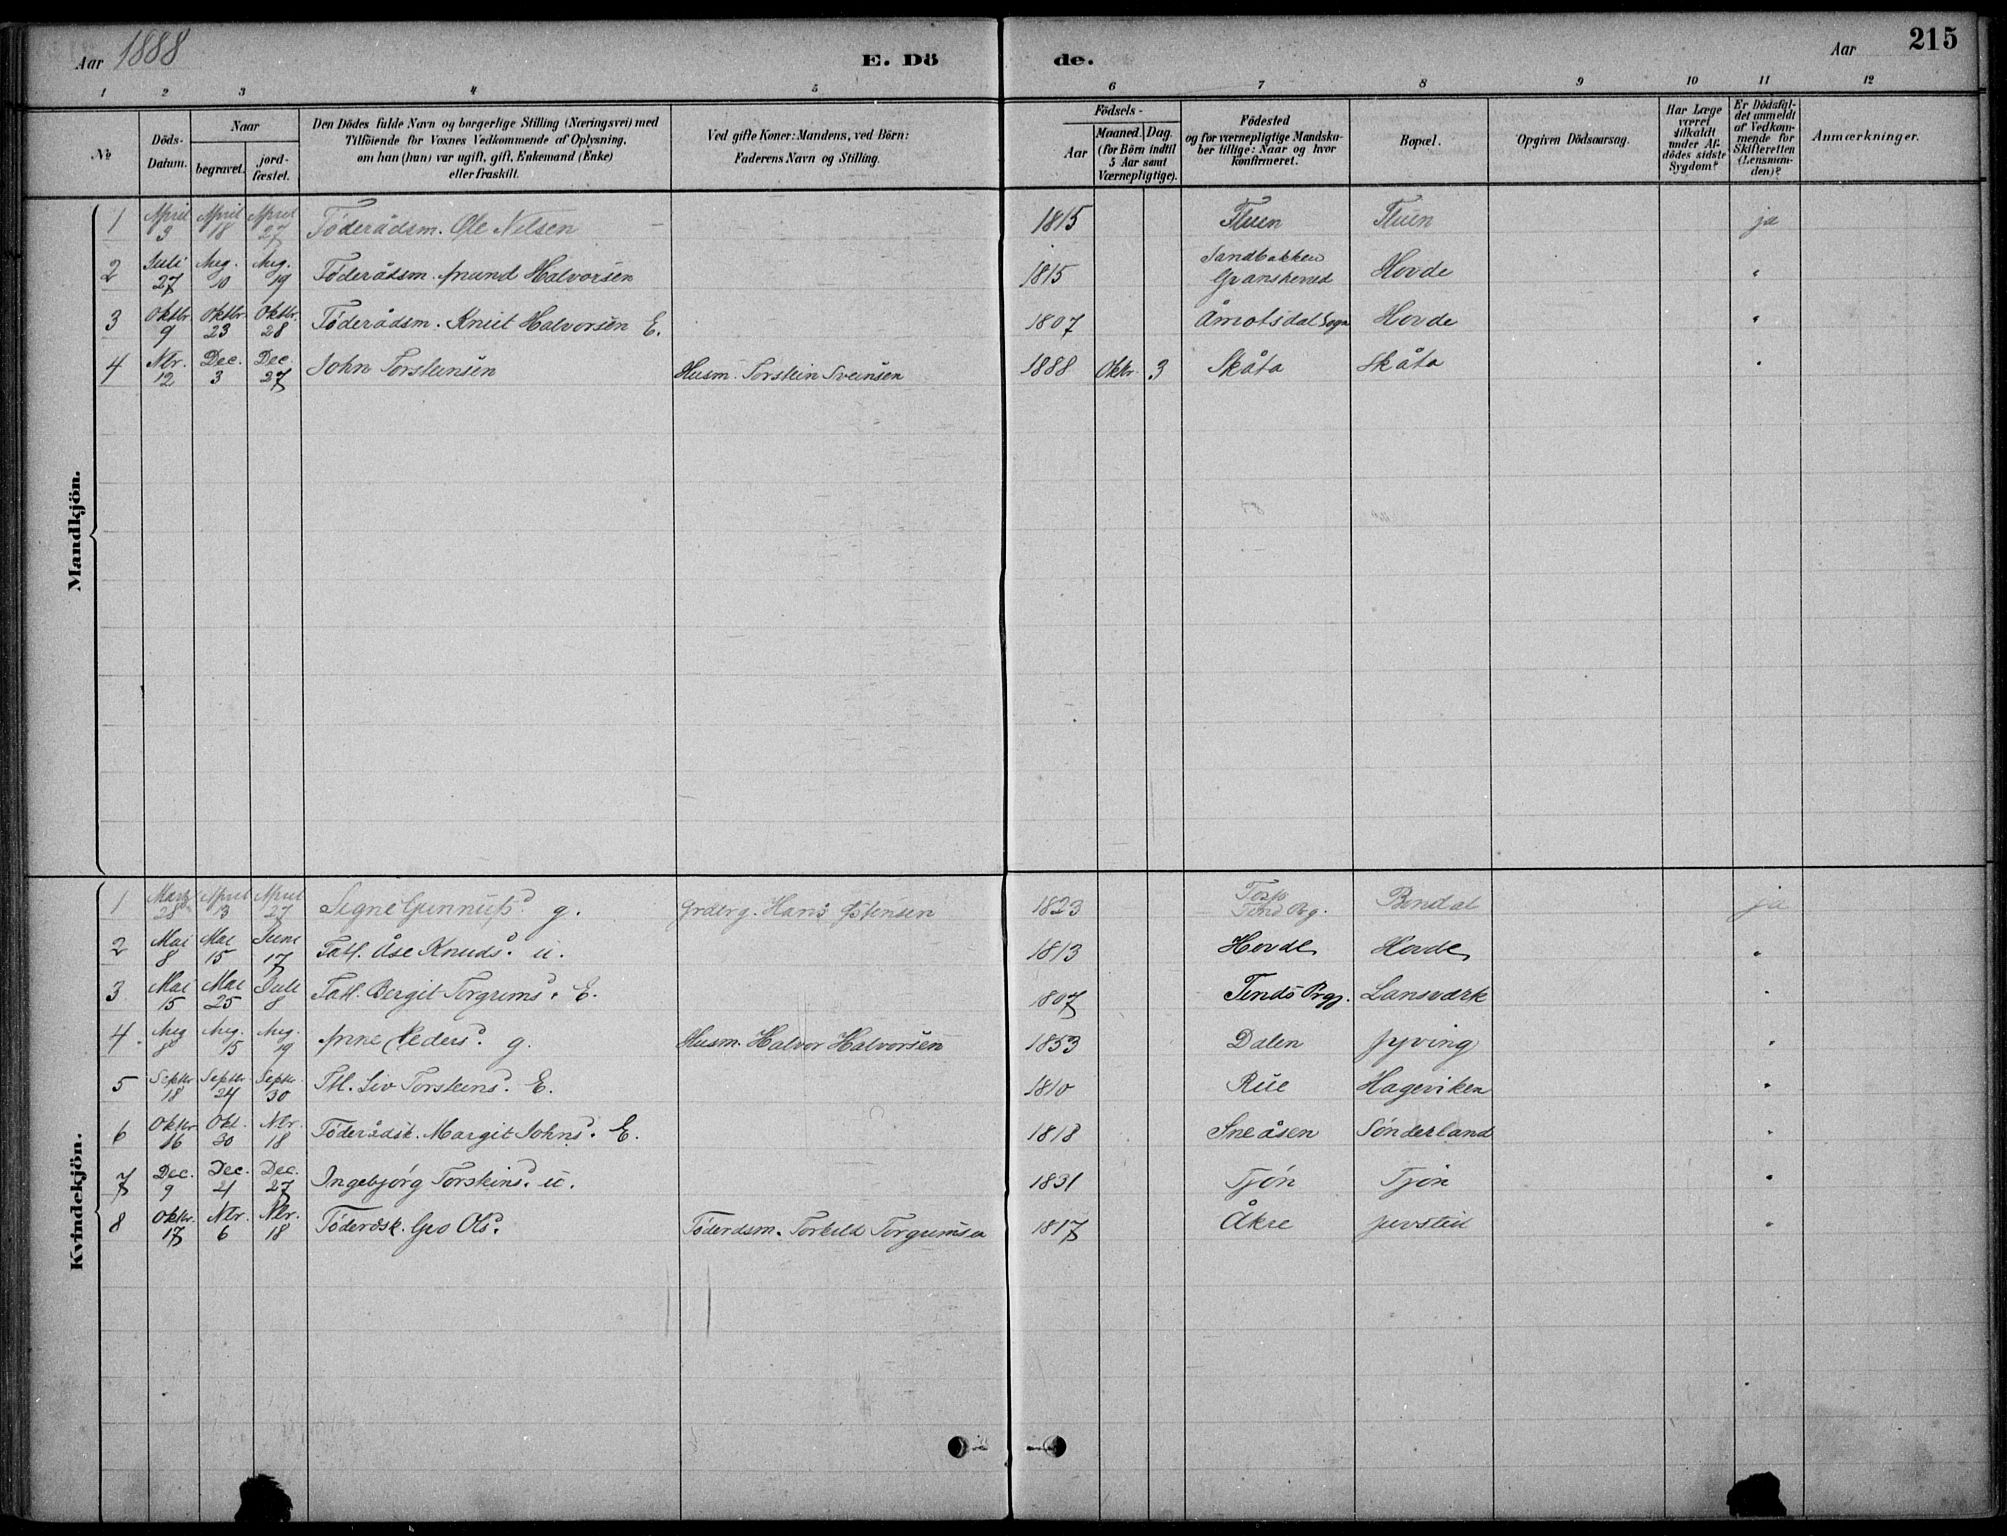 Aar 1888 E. Dö de. Aar 215
1 2 3 4 5 6 7 8 9 10 11 12
No
Döds-
Datum.
Naar
begravet.
jord-
fæstet.
Den Dödes fulde Navn og borgerlige Stilling (Næringsvei) med
Tilföiende for Voxnes Vedkommende af Oplysning,
om han (hun) var ugift, gift, Enkemand (Enke)
eller fraskilt.
Ved gifte Koner: Mandens, ved Börn:
Faderens Navn og Stilling.
Födsels-
Aar
Maaned. Dag.
(for Börn indtil
5 Aar samt
Værnepligtige).
Födested
og for værnepligtige Mandska-
ber tillige: Naar og hvor
konfirmeret.
Bopæl.
Opgiven Dödsaarsag.
Har Læge
været
tilkaldt
under Af-
dödes sidste
Sygdom?
Er Dödsfal-
det anmeldt
af Vedkom-
mende for
Skifteretten
(Lensman-
den)?
Anmærkninger.
Mandkjön.
1 April 3 April 18 April 27 Föderådsm. Ole Nelsen 1815 Fluen Fluen ja
2 Juli 27 Aug. 10 Aug. 19 Föderådsm. Amund Halvorsen 1815 Sandbakken Hovde "
3 Oktbr. 9 Oktbr. 23 Oktbr. 28 Föderådsm. Knut Halvorsen E. 1807 Åmotsdal Sogn Hovde "
4 Nbr. 12 Dec. 3 Dec. 27 John Torsteinsen Husm. Torstein Sveinsen 1888 Oktbr. 3 Skåta Skåta "
Kvindekjön.
1 Marts 28 April 13 April 27 Signe g. Grdbrg. Hans Østensen 1823 Tind Prg. Bondal ja
2 Mai 8 Mai 15 June 17 Fatl. Åse Knudsd. u. 1813 Hovde Hovde "
3 Mai 15 Mai 25 Juli 8 Fatl. Bergit Torgrimsd. E. 1807 Tinds Prgj. Lansværk "
4 Aug 8 Aug. 15 Aug. 19 Anne Pedersd. g. Husm. Halvor Halvorsen 1853 Dalen Jyving "
5 Septbr. 18 Septbr. 24 Septbr. 30 Ftl. Liv Torsteinsd. E. 1810 Rue Hageviken "
6 Oktbr 16 Okt. 30 Nbr. 18 Föderådsk. Margit Johnsd. E. 1818 Sneåsen Sönderland "
7 Dec. 9 Dec. 21 Dec. 27 Ingebjörg Torsteinsd. u. 1831 Tjön Tjön "
8 Oktbr. 17 Nbr. 6 Nbr. 18 Föderdsk. Gro Olsd. Föderdsm. Torkild Torgrimsen 1817 Åkre "